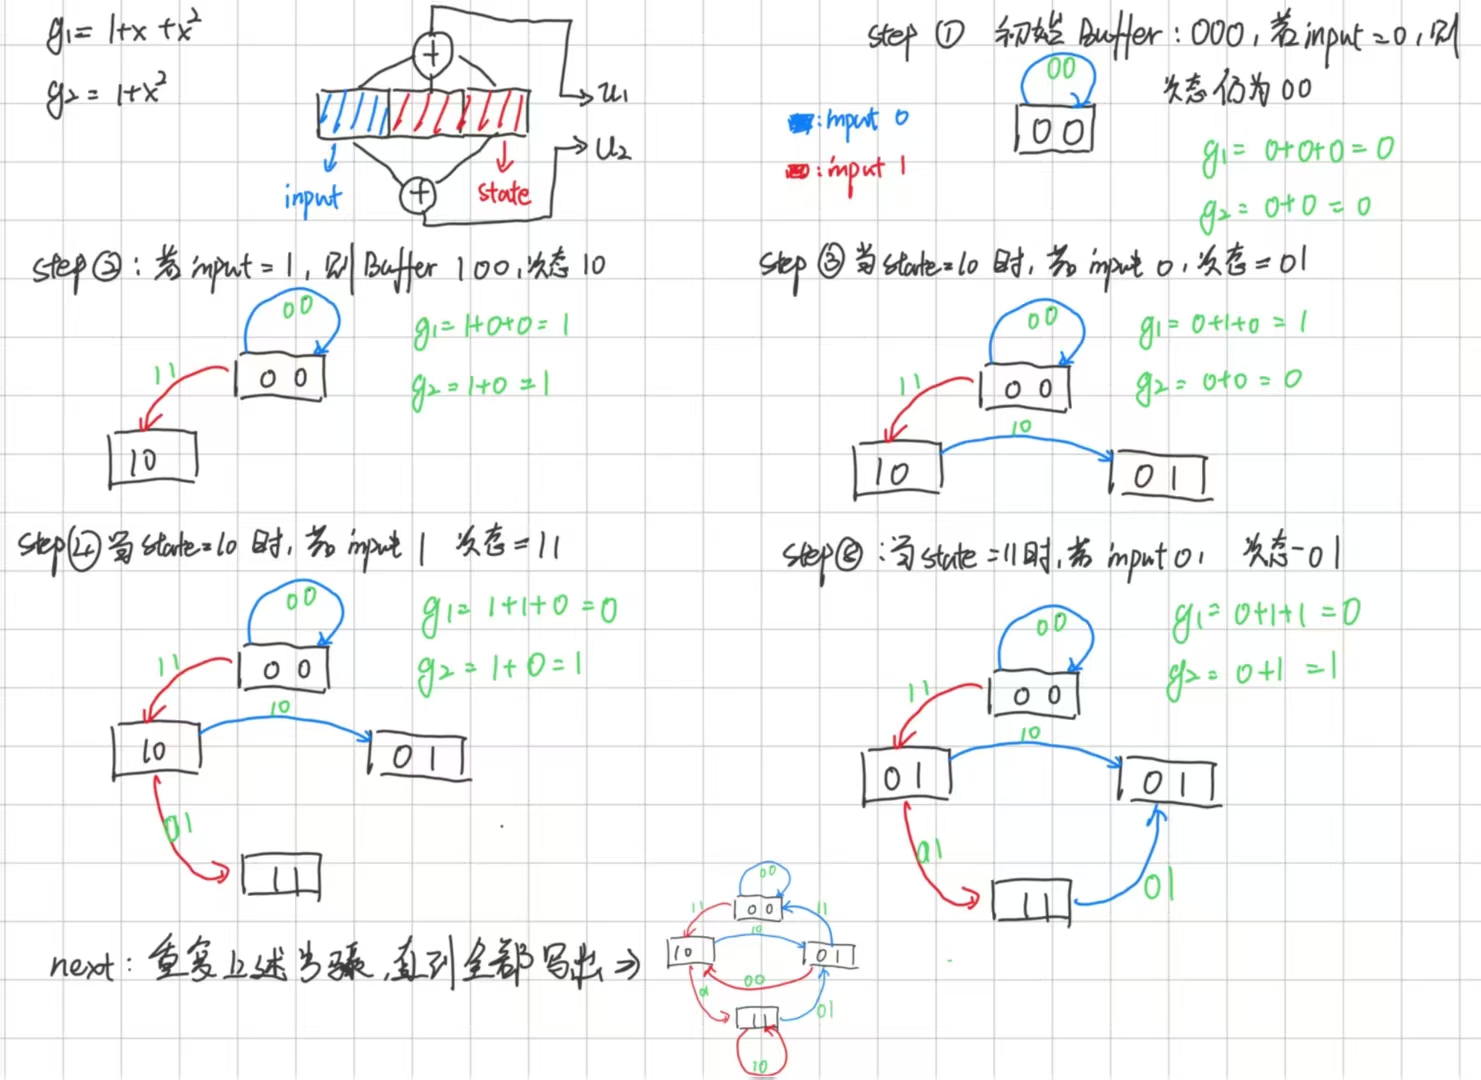 g₁ = 1+x+x²
g₂ = 1+x²
+
→u₁
→u₂
+
input
state
: input 0
: input 1
step ① 初始Buffer: 000, 若input=0, 则
次态仍为00
00
00
g₁= 0+0+0=0
g₂= 0+0=0
step②: 若input=1, 则Buffer 100, 次态10
00
00
11
10
g₁=1+0+0=1
g₂=1+0=1
step ③当state=10时, 若input 0, 次态=01
00
00
11
10
10
01
g₁= 0+1+0=1
g₂= 0+0=0
step④当state=10时, 若input 1 次态=11
00
00
11
10
10
01
01
11
g₁= 1+1+0=0
g₂= 1+0=1
step⑤: 当state=11时, 若input 0, 次态-01
00
00
11
10
01
01
01
11
01
g₁= 0+1+1=0
g₂= 0+1=1
next: 重复上述步骤, 直到全部写出⇒
00
00
11
11
10
10
01
00
01
11
10